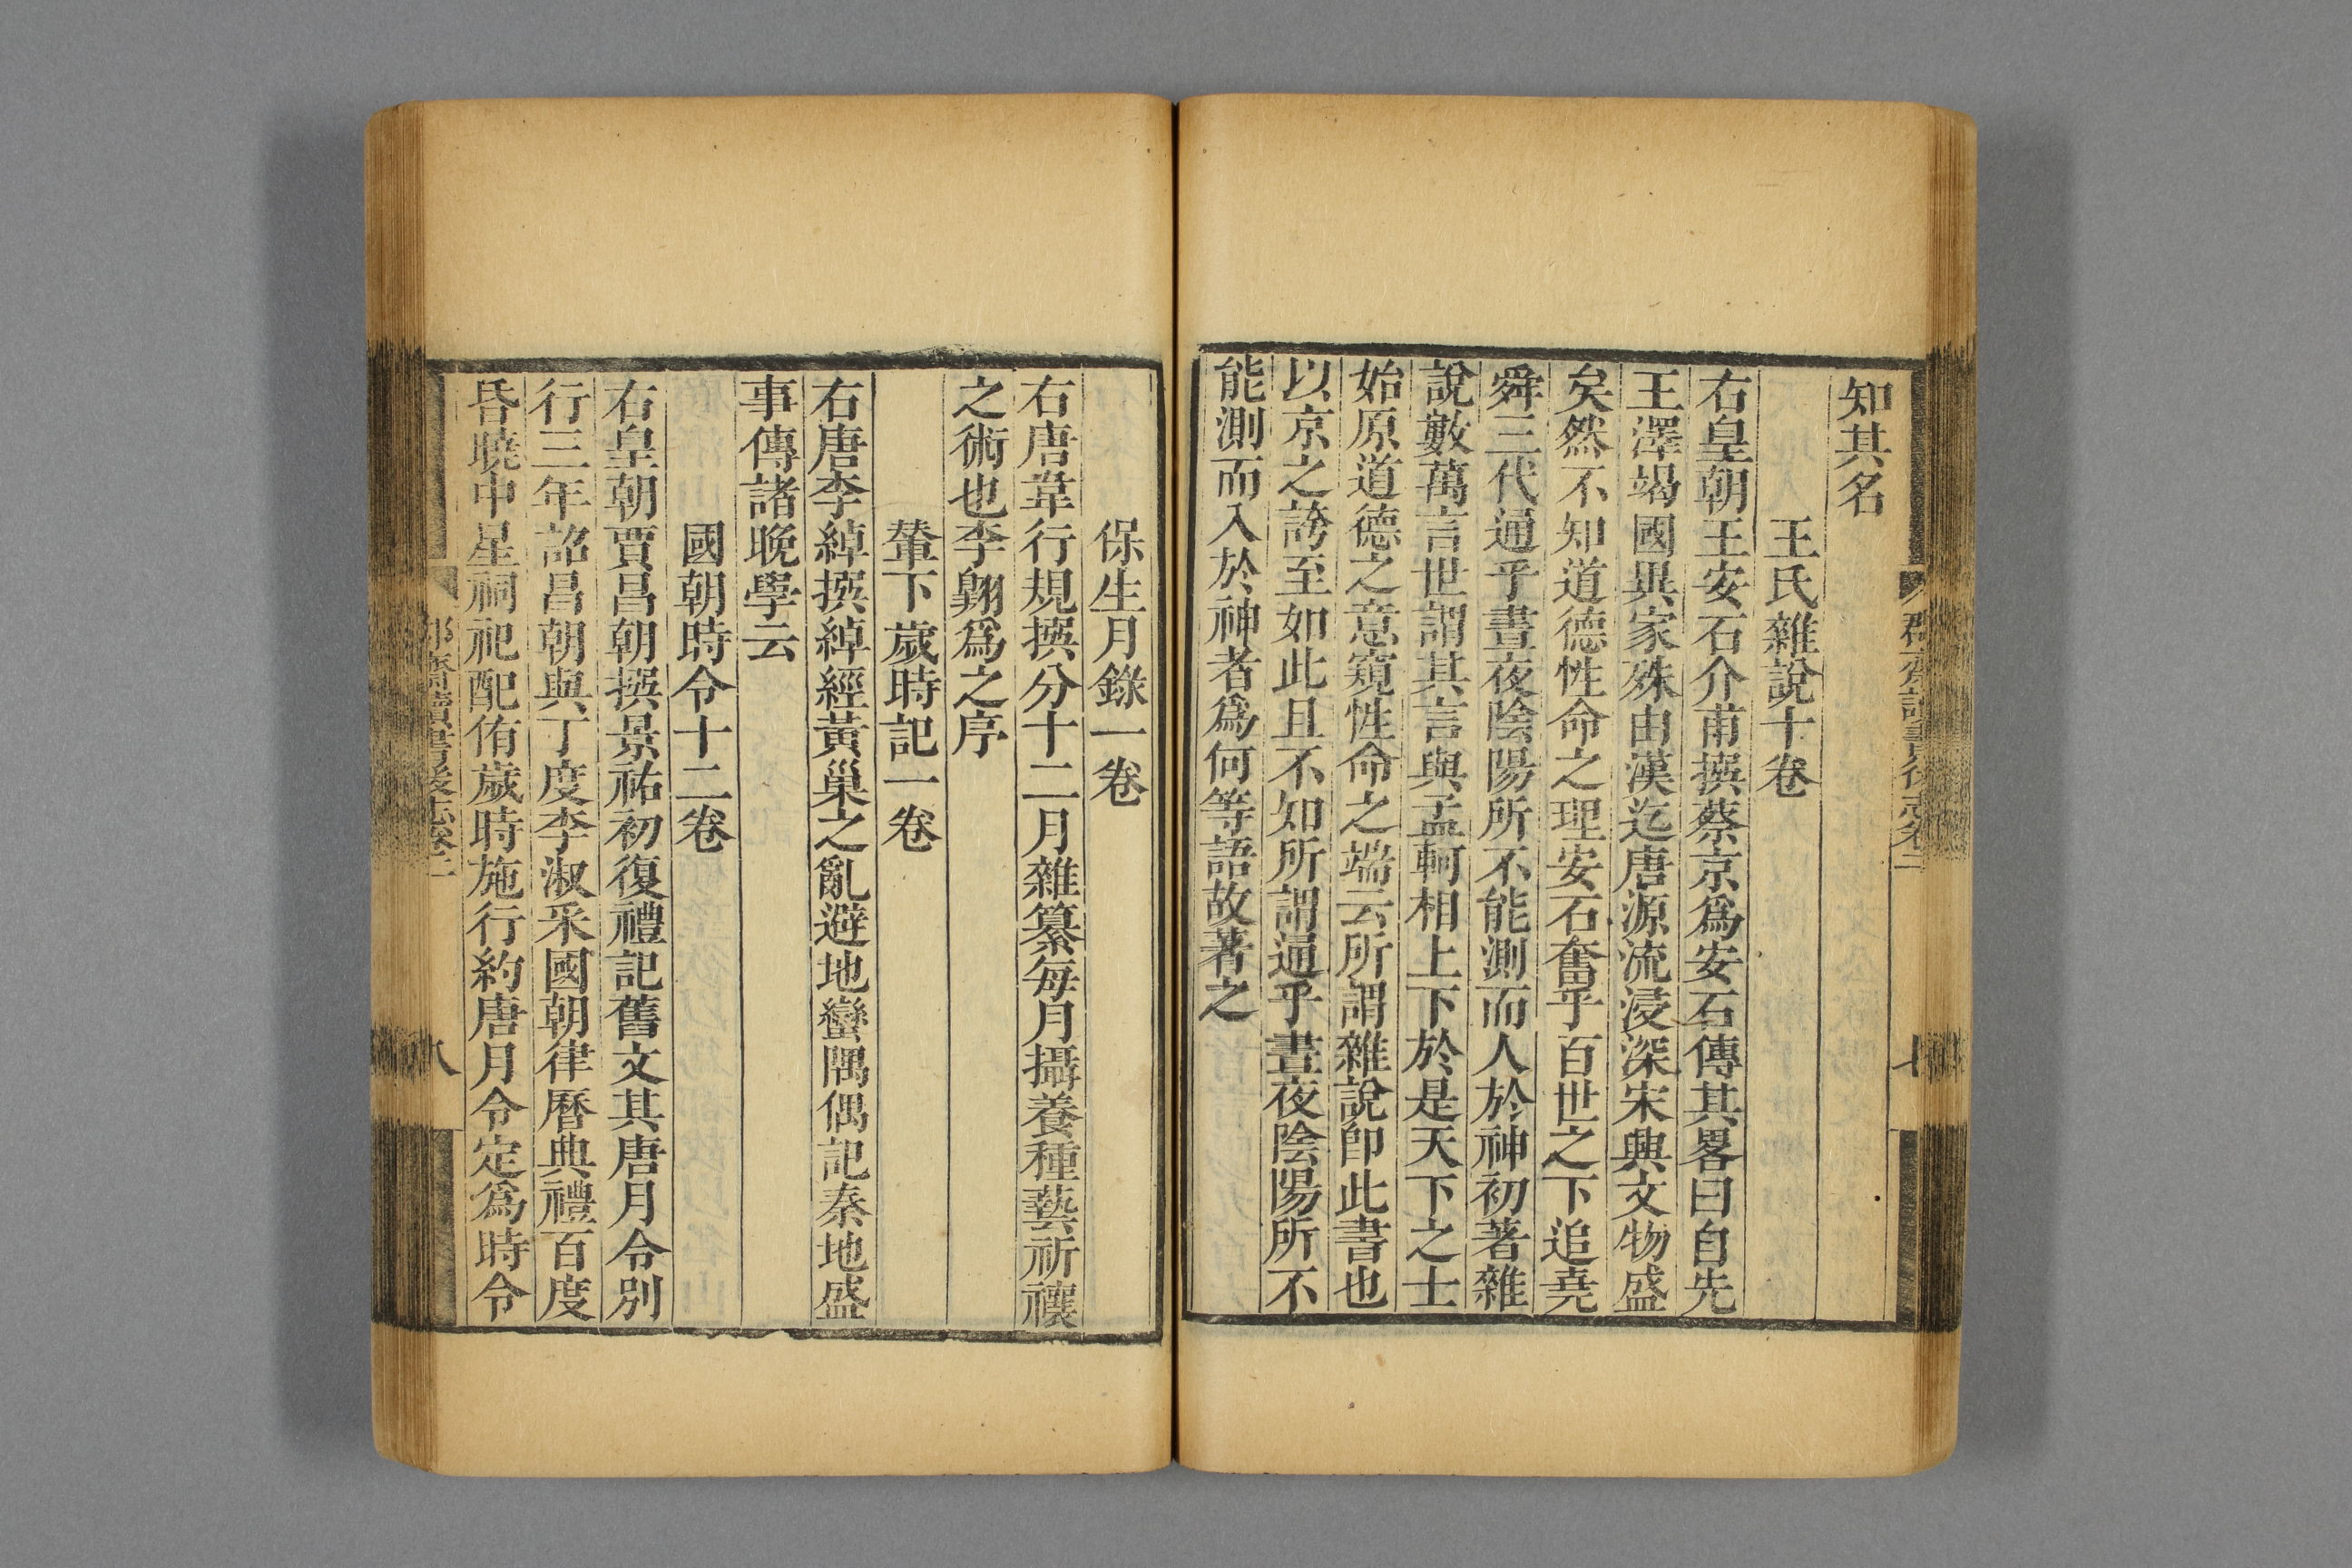 知其名
王氏雜說十卷
右皇朝王安石介甫撰蔡京爲安石傳其畧曰自先
王澤竭國異家殊由漢迄唐源流浸深宋興文物盛
矣然不知道德性命之理安石奮乎百世之下追堯
舜三代通乎晝夜陰陽所不能測而人於神初著雜
說數萬言世謂其言與孟軻相上下於是天下之士
始原道德之意窺性命之端云所謂雜說即此書也
以京之誇至如此且不知所謂通乎晝夜陰陽所不
能測而入於神者爲何等語故著之
保生月錄一卷
右唐韋行規撰分十二月雜纂每月攝養種藝祈禳
之術也李翺爲之序
輦下歲時記一卷
右唐李綽撰綽經黃巢之亂避地蠻隅偶記秦地盛
事傳諸晚學云
國朝時令十二卷
右皇朝賈昌朝撰景祐初復禮記舊文其唐月令別
行三年詔昌朝與丁度李淑采國朝律曆典禮百度
昏曉中星祠祀配侑歲時施行約唐月令定爲時令
八